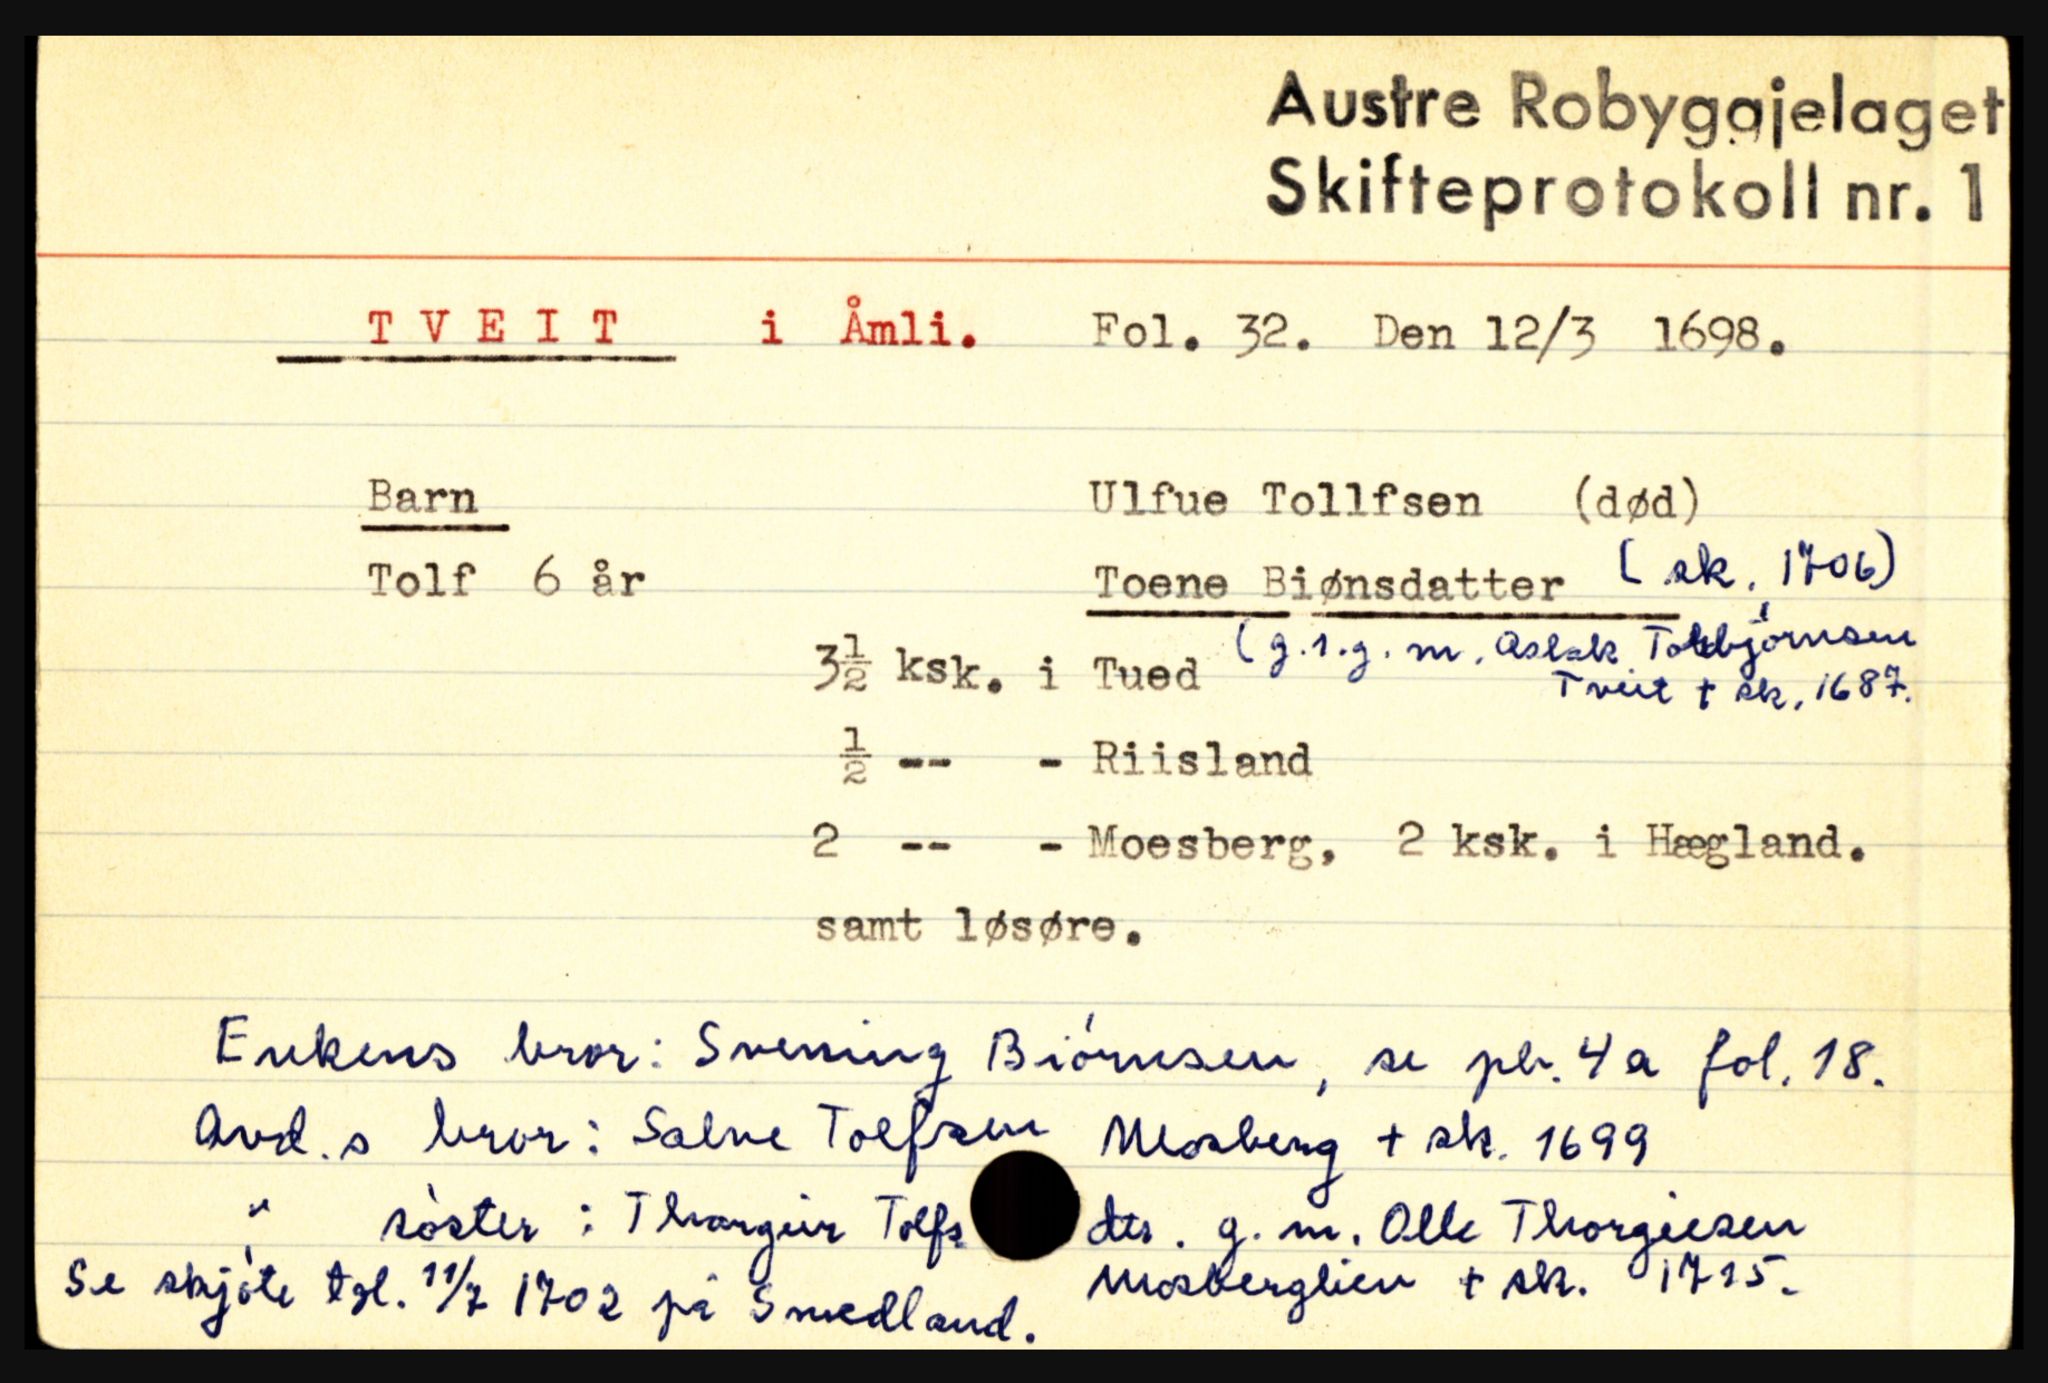 Austre Robyggjelaget
Skifteprotokoll nr. 1
TVEIT i Åmli. Fol. 32. Den 12/3 1698.
Barn Ulfue Tollfsen (død)
Tolf 6 år Toene Biønsdatter (sk. 1706)
(g.1.g.m. Aslak Torbjörnsen
3½ ksk. i Tued
Tveit + sk. 1687.
½ -- - Riisland
2 -- - Moesberg, 2 ksk. i Hægland.
samt løsøre.
Enkens bror: Svening Biörnsen, se pk. 4a fol. 18.
Avd.s bror: Salve Tolfsen Mosberg + sk. 1699
" söster: Thorgier Tolfs dtr. g.m. Olle Thorgiesen
Mosberglien + sk. 1715.
Se skjöte tgl. 11/7 1702 på Smedland.